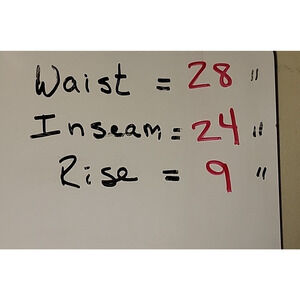 Waist = 28 "
Inseam = 24 "
Rise = 9 "